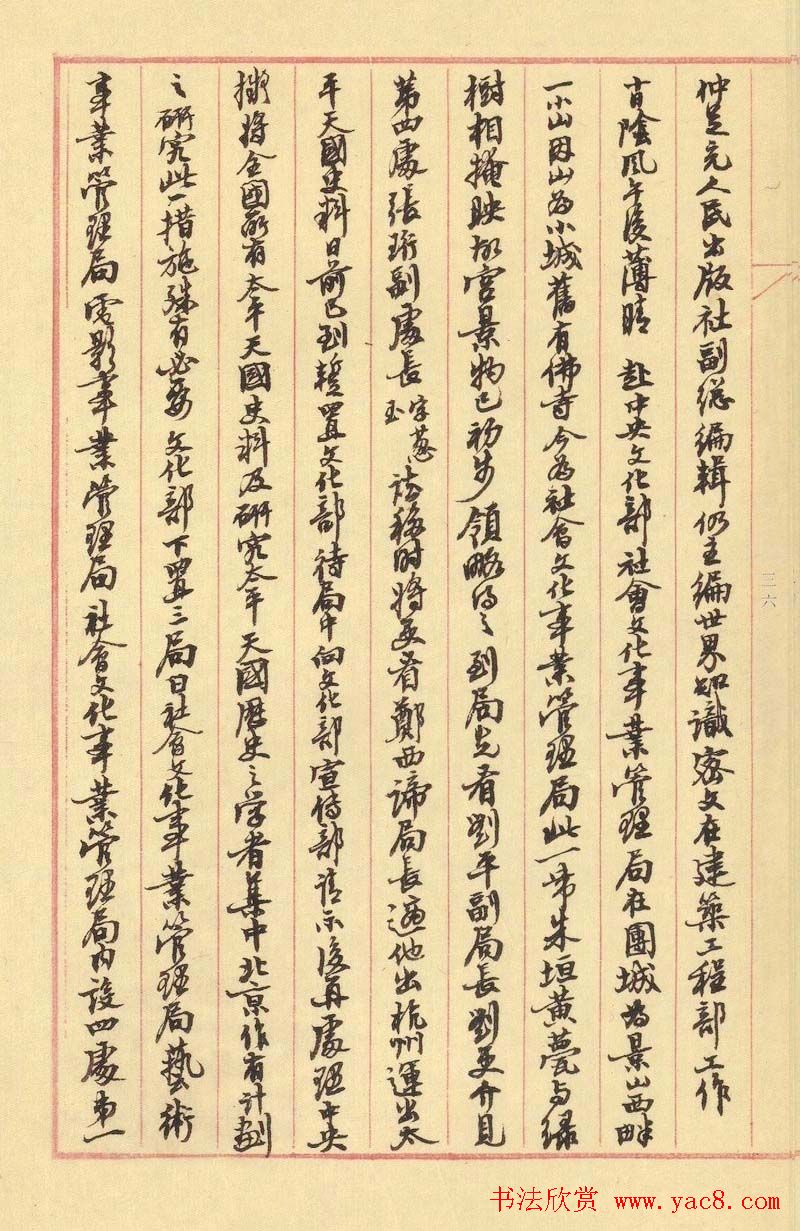 仲足充人民出版社副总编辑仍主编世界知識密文在建築工程部工作
十日陰風午後薄晴 赴中央文化部社會文化事業管理局在團城為景山西畔
一小山因山為小城舊有佛寺今為社會文化事業管理局此一帶朱垣黃甍与绿
樹相掩映故宫景物已初步領略得之到局先看劉平副局長劉更介見
第四處張珩副處長字葱玉談移时将更看鄭西諦局長適他出杭州運出太
平天國史料日前已到暫置文化部待局中向文化部宣傳部请示後再處理中央
擬将全國所有太平天國史料及研究太平天國歷史之学者集中北京作有计劃
之研究此一措施殊有必要文化部下置三局曰社會文化事業管理局藝術
事業管理局電影事業管理局社會文化事業管理局内設四處第一
三六
书法欣赏 www.yac8.com